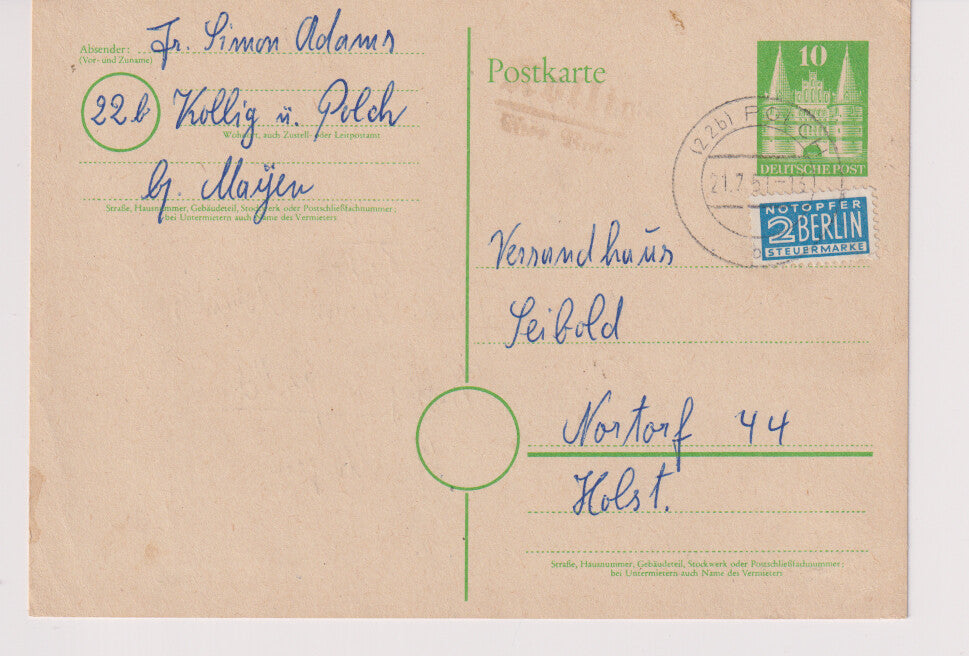 Absender:
(Vor- und Zuname)
Fr. Simon Adams
22b Kollig ü. Polch
Wohnort, auch Zustell- oder Leitpostamt
bz. Mayen
Straße, Hausnummer, Gebäudeteil, Stockwerk oder Postschließfachnummer;
bei Untermietern auch Name des Vermieters
Postkarte
10
DEUTSCHE POST
(22b) POLCH
21.7.51.-13
NOTOPFER
2 BERLIN
STEUERMARKE
Versandhaus
Seibold
Nortorf 44
Holst.
Straße, Hausnummer, Gebäudeteil, Stockwerk oder Postschließfachnummer;
bei Untermietern auch Name des Vermieters